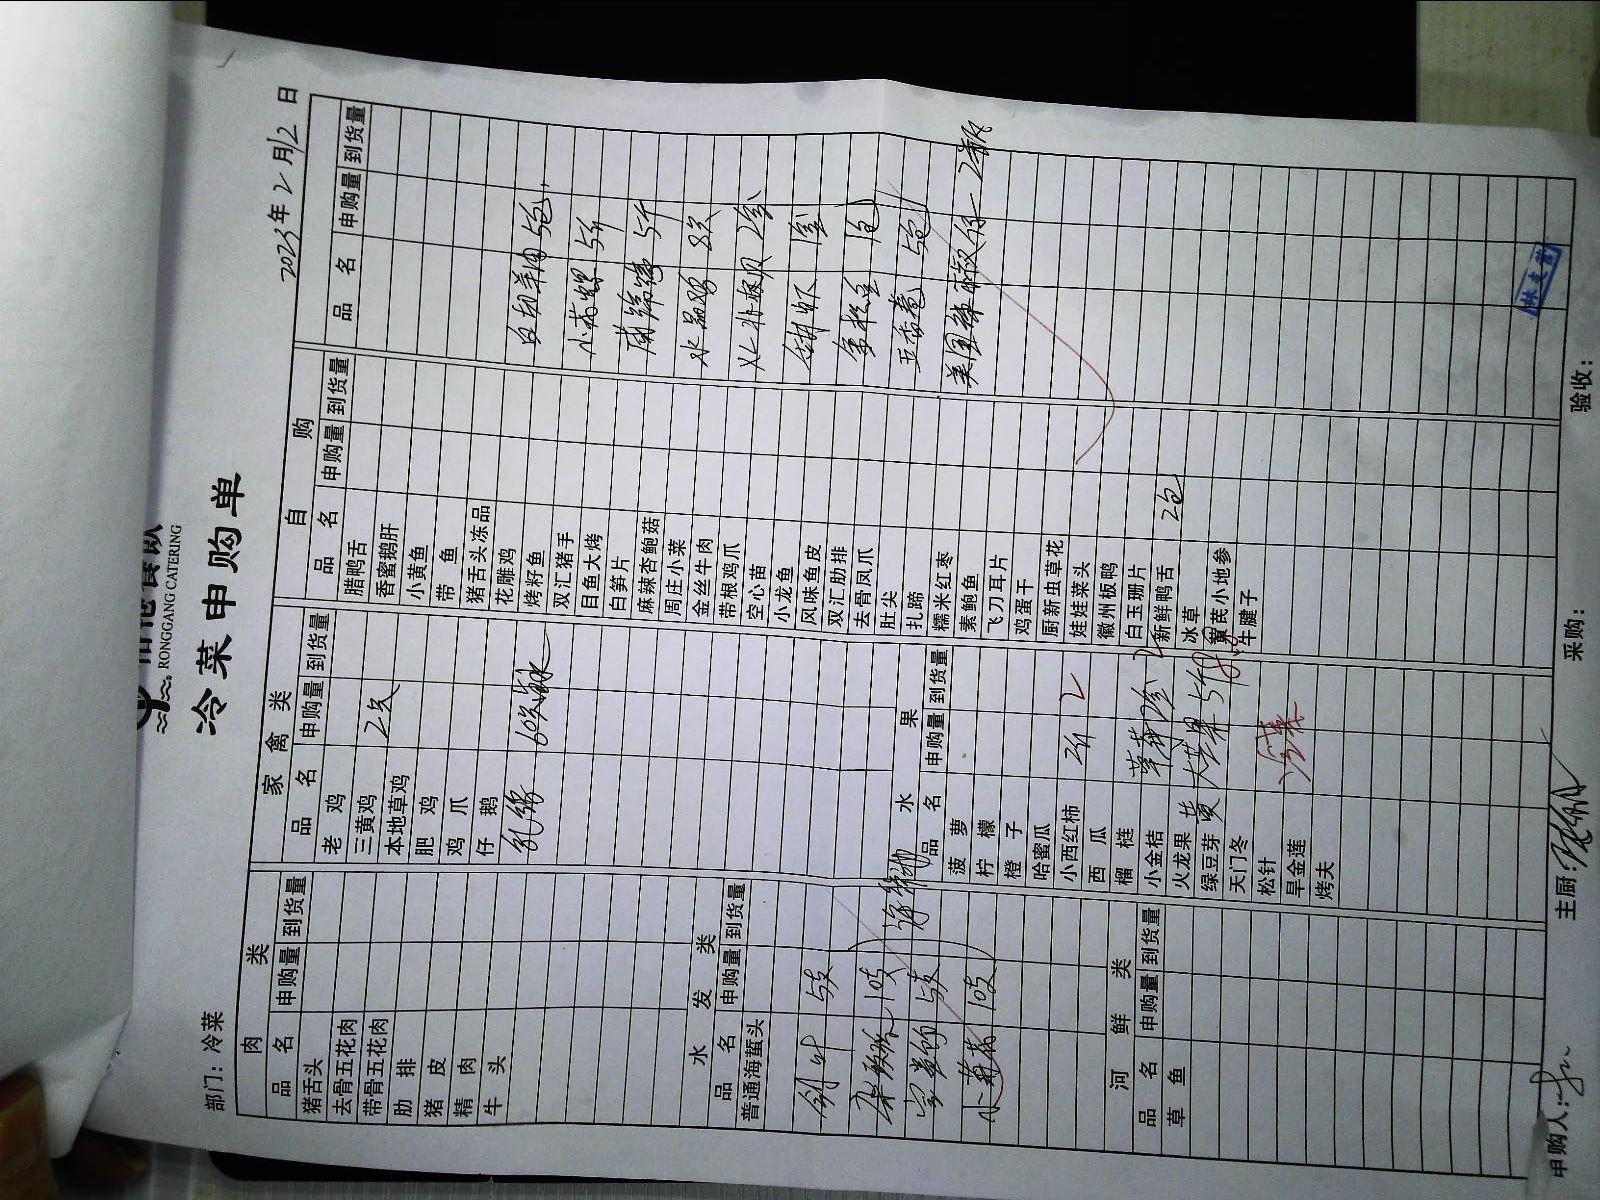 RONGGANG CATERING
冷菜申购单
部门：冷菜
2023年2月12日
肉类
品名 申购量 到货量
猪舌头
去骨五花肉
带骨五花肉
肋排
猪皮
精肉
牛头
水发类
品名 申购量 到货量
普通海蜇头
5支
10支
5支
小菊花 10支
河鲜类
品名 申购量 到货量
草鱼
家禽类
品名 申购量 到货量
老鸡
三黄鸡 2只
本地草鸡
肥鸡
鸡爪
仔鹅
乳鸽 60只
水果
品名 申购量 到货量
菠萝
柠檬
橙子
哈蜜瓜
小西红柿 3斤 2
西瓜
榴梿
小金桔
火龙果
绿豆芽
天门冬
松针
旱金莲
烤夫
冷菜
自购
品名 申购量 到货量
腊鸭舌
香蜜鹅肝
小黄鱼
带鱼
猪舌头冻品
花雕鸡
烤籽鱼
双汇猪手
目鱼大烤
白笋片
麻辣杏鲍菇
周庄小菜
金丝牛肉
带根鸡爪
空心苗
小龙鱼
风味鱼皮
双汇肋排
去骨凤爪
肚尖
扎蹄
糯米红枣
素鲍鱼
飞刀耳片
鸡蛋干
厨新虫草花
娃娃菜头
徽州板鸭
白玉珊片
新鲜鸭舌 2包
冰草
黄芪小地参
牛腱子
品名 申购量 到货量
白切羊肉 5包
小黄螺 5斤
5斤
水晶鸡 8只
北极贝 2盒
1盒
1包
五香卷 5包
美国辣椒仔 2瓶
申购人：
主厨：
采购：
验收：